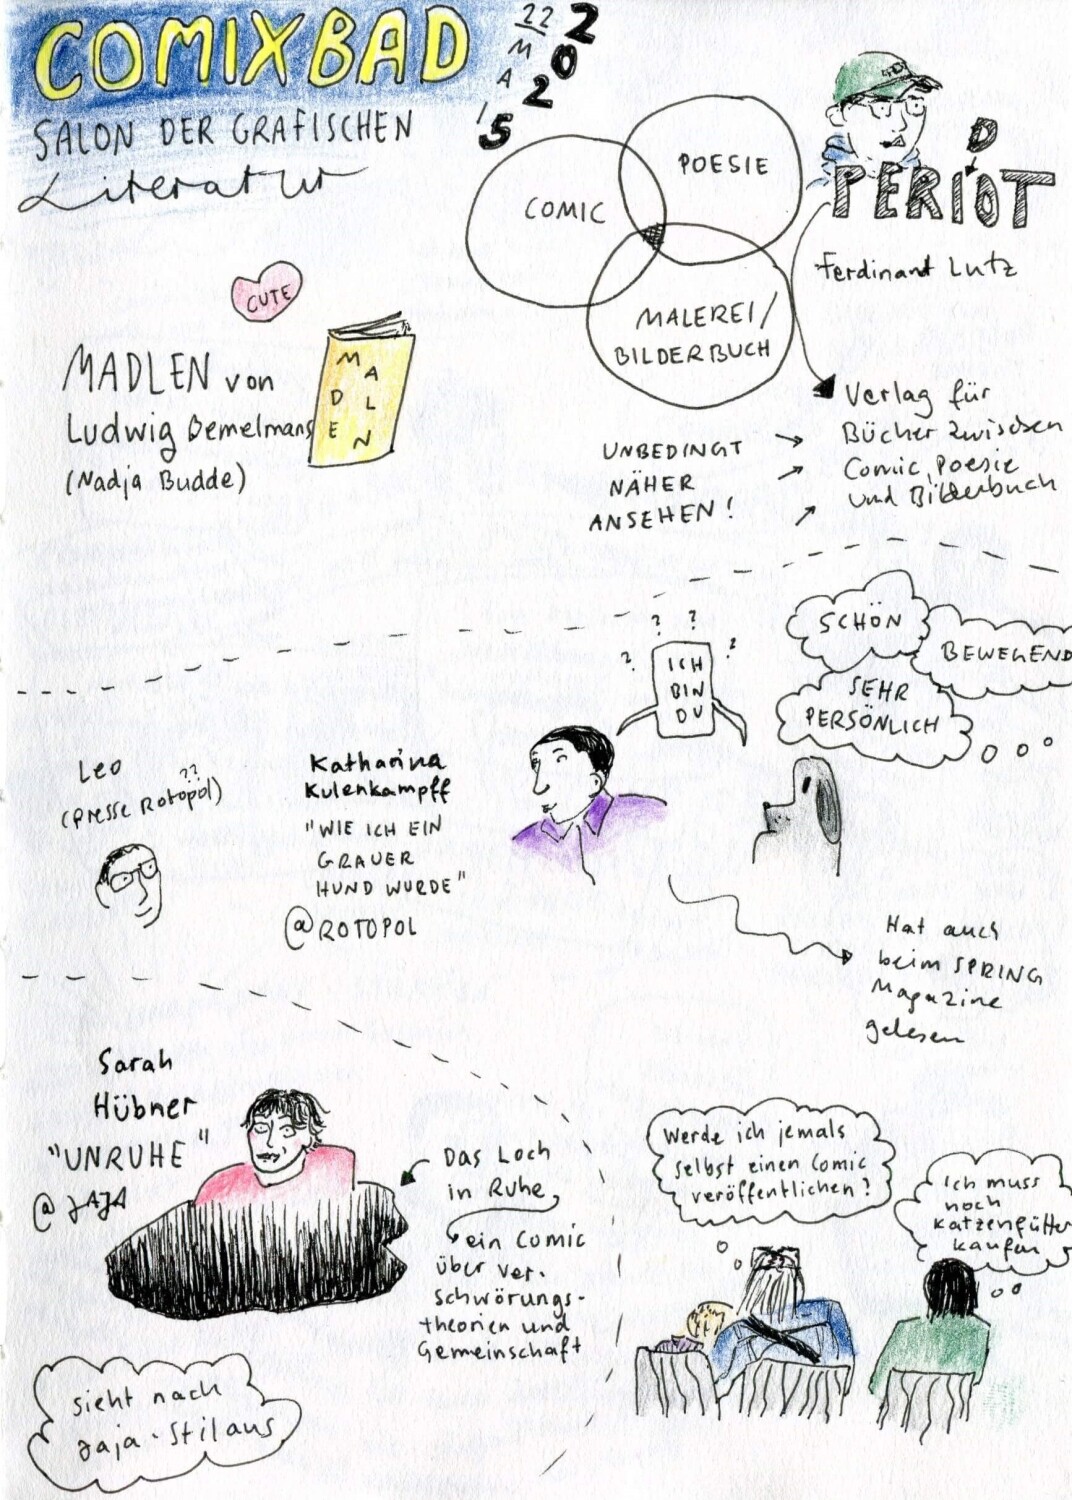 COMIXBAD
22
MAI
2025
SALON DER GRAFISCHEN
Literatur
CUTE
MADLEN von
Ludwig Bemelmans
(Nadja Budde)
MADLN
DE
COMIC
POESIE
MALEREI/
BILDERBUCH
D
PERIOT
Ferdinant Lutz
Verlag für
Bücher zwischen
Comic, Poesie
und Bilderbuch
UNBEDINGT
NÄHER
ANSEHEN!
Leo
??
(Presse Rotopol)
Katharina
Kulenkampff
"WIE ICH EIN
GRAUER
HUND WURDE"
@ROTOPOL
? ?
? ?
ICH
BIN
DU
SCHÖN
BEWEGEND
SEHR
PERSÖNLICH
Hat auch
beim SPRING
Magazine
gelesen
Sarah
Hübner
"UNRUHE"
@JAJA
Das Loch
in Ruhe,
ein Comic
über ver-
schwörungs-
theorien und
Gemeinschaft
sieht nach
Jaja-Stil aus
Werde ich jemals
selbst einen Comic
veröffentlichen?
Ich muss
noch
Katzenfutter
kaufen